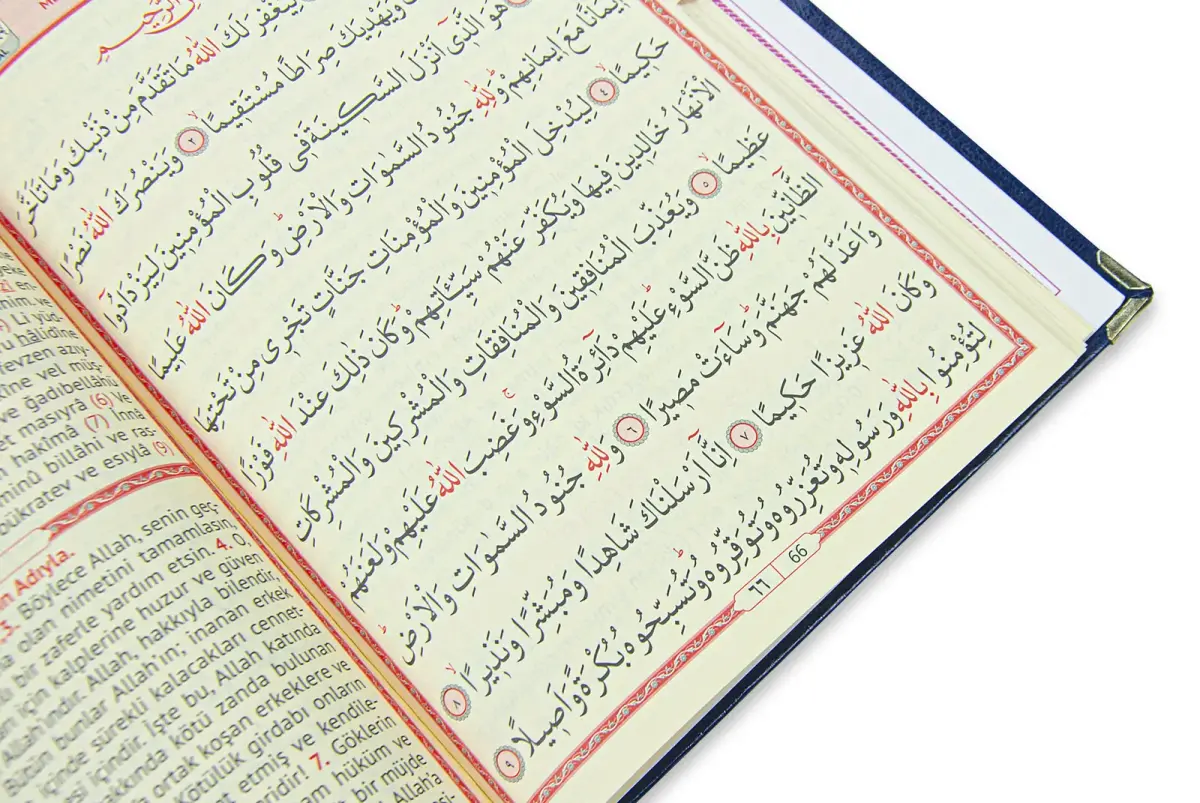 الرَّحِيمِ
لِيَغْفِرَ لَكَ اللّٰهُ مَا تَقَدَّمَ مِنْ ذَنْبِكَ وَمَا تَاَخَّرَ
وَيَهْدِيَكَ صِرَاطًا مُسْتَقِيمًا ٢ وَيَنْصُرَكَ اللّٰهُ نَصْرًا
هُوَ الَّذِى اَنْزَلَ السَّكِينَةَ فِى قُلُوبِ الْمُؤْمِنِينَ لِيَزْدَادُوا
اِيمَانًا مَعَ اِيمَانِهِمْ وَلِلّٰهِ جُنُودُ السَّمٰوَاتِ وَالْاَرْضِ وَكَانَ اللّٰهُ عَلِيمًا
حَكِيمًا ٤ لِيُدْخِلَ الْمُؤْمِنِينَ وَالْمُؤْمِنَاتِ جَنَّاتٍ تَجْرِى مِنْ تَحْتِهَا
الْاَنْهَارُ خَالِدِينَ فِيهَا وَيُكَفِّرَ عَنْهُمْ سَيِّـَٔاتِهِمْ وَكَانَ ذٰلِكَ عِنْدَ اللّٰهِ فَوْزًا
عَظِيمًا ٥ وَيُعَذِّبَ الْمُنَافِقِينَ وَالْمُنَافِقَاتِ وَالْمُشْرِكِينَ وَالْمُشْرِكَاتِ
الظَّٓانِّينَ بِاللّٰهِ ظَنَّ السَّوْءِ عَلَيْهِمْ دَٓائِرَةُ السَّوْءِ وَغَضِبَ اللّٰهُ عَلَيْهِمْ وَلَعَنَهُمْ
وَاَعَدَّ لَهُمْ جَهَنَّمَ وَسَٓاءَتْ مَصِيرًا ٦ وَلِلّٰهِ جُنُودُ السَّمٰوَاتِ وَالْاَرْضِ
وَكَانَ اللّٰهُ عَزِيزًا حَكِيمًا ٧ اِنَّٓا اَرْسَلْنَاكَ شَاهِدًا وَمُبَشِّرًا وَنَذِيرًا ٨
لِتُؤْمِنُوا بِاللّٰهِ وَرَسُولِهِ وَتُعَزِّرُوهُ وَتُوَقِّرُوهُ وَتُسَبِّحُوهُ بُكْرَةً وَاَصِيلًا ٩
٦٦ | 66
Li yüd
hâlidîne
fevzen azıy
vel müş
ve ğadıbellâhü
masıyrâ (6) Ve
hakîmâ (7) İnnâ
billâhi ve ras
bükratev ve esıylâ (9)
Adıyla.
Böylece Allah, senin geç-
olan nimetini tamamlasın,
bir zaferle yardım etsin. 4. O,
için kalplerine huzur ve güven
Allah'ındır. Allah, hakkıyla bilendir,
Bütün bunlar Allah'ın; inanan erkek
içinde sürekli kalacakları cennet-
içindir. İşte bu, Allah katında
hakkında kötü zanda bulunan
ortak koşan erkeklere ve
Kötülük girdabı onların
etmiş ve kendile-
7. Göklerin
hüküm ve
bir müjde
Allah'a